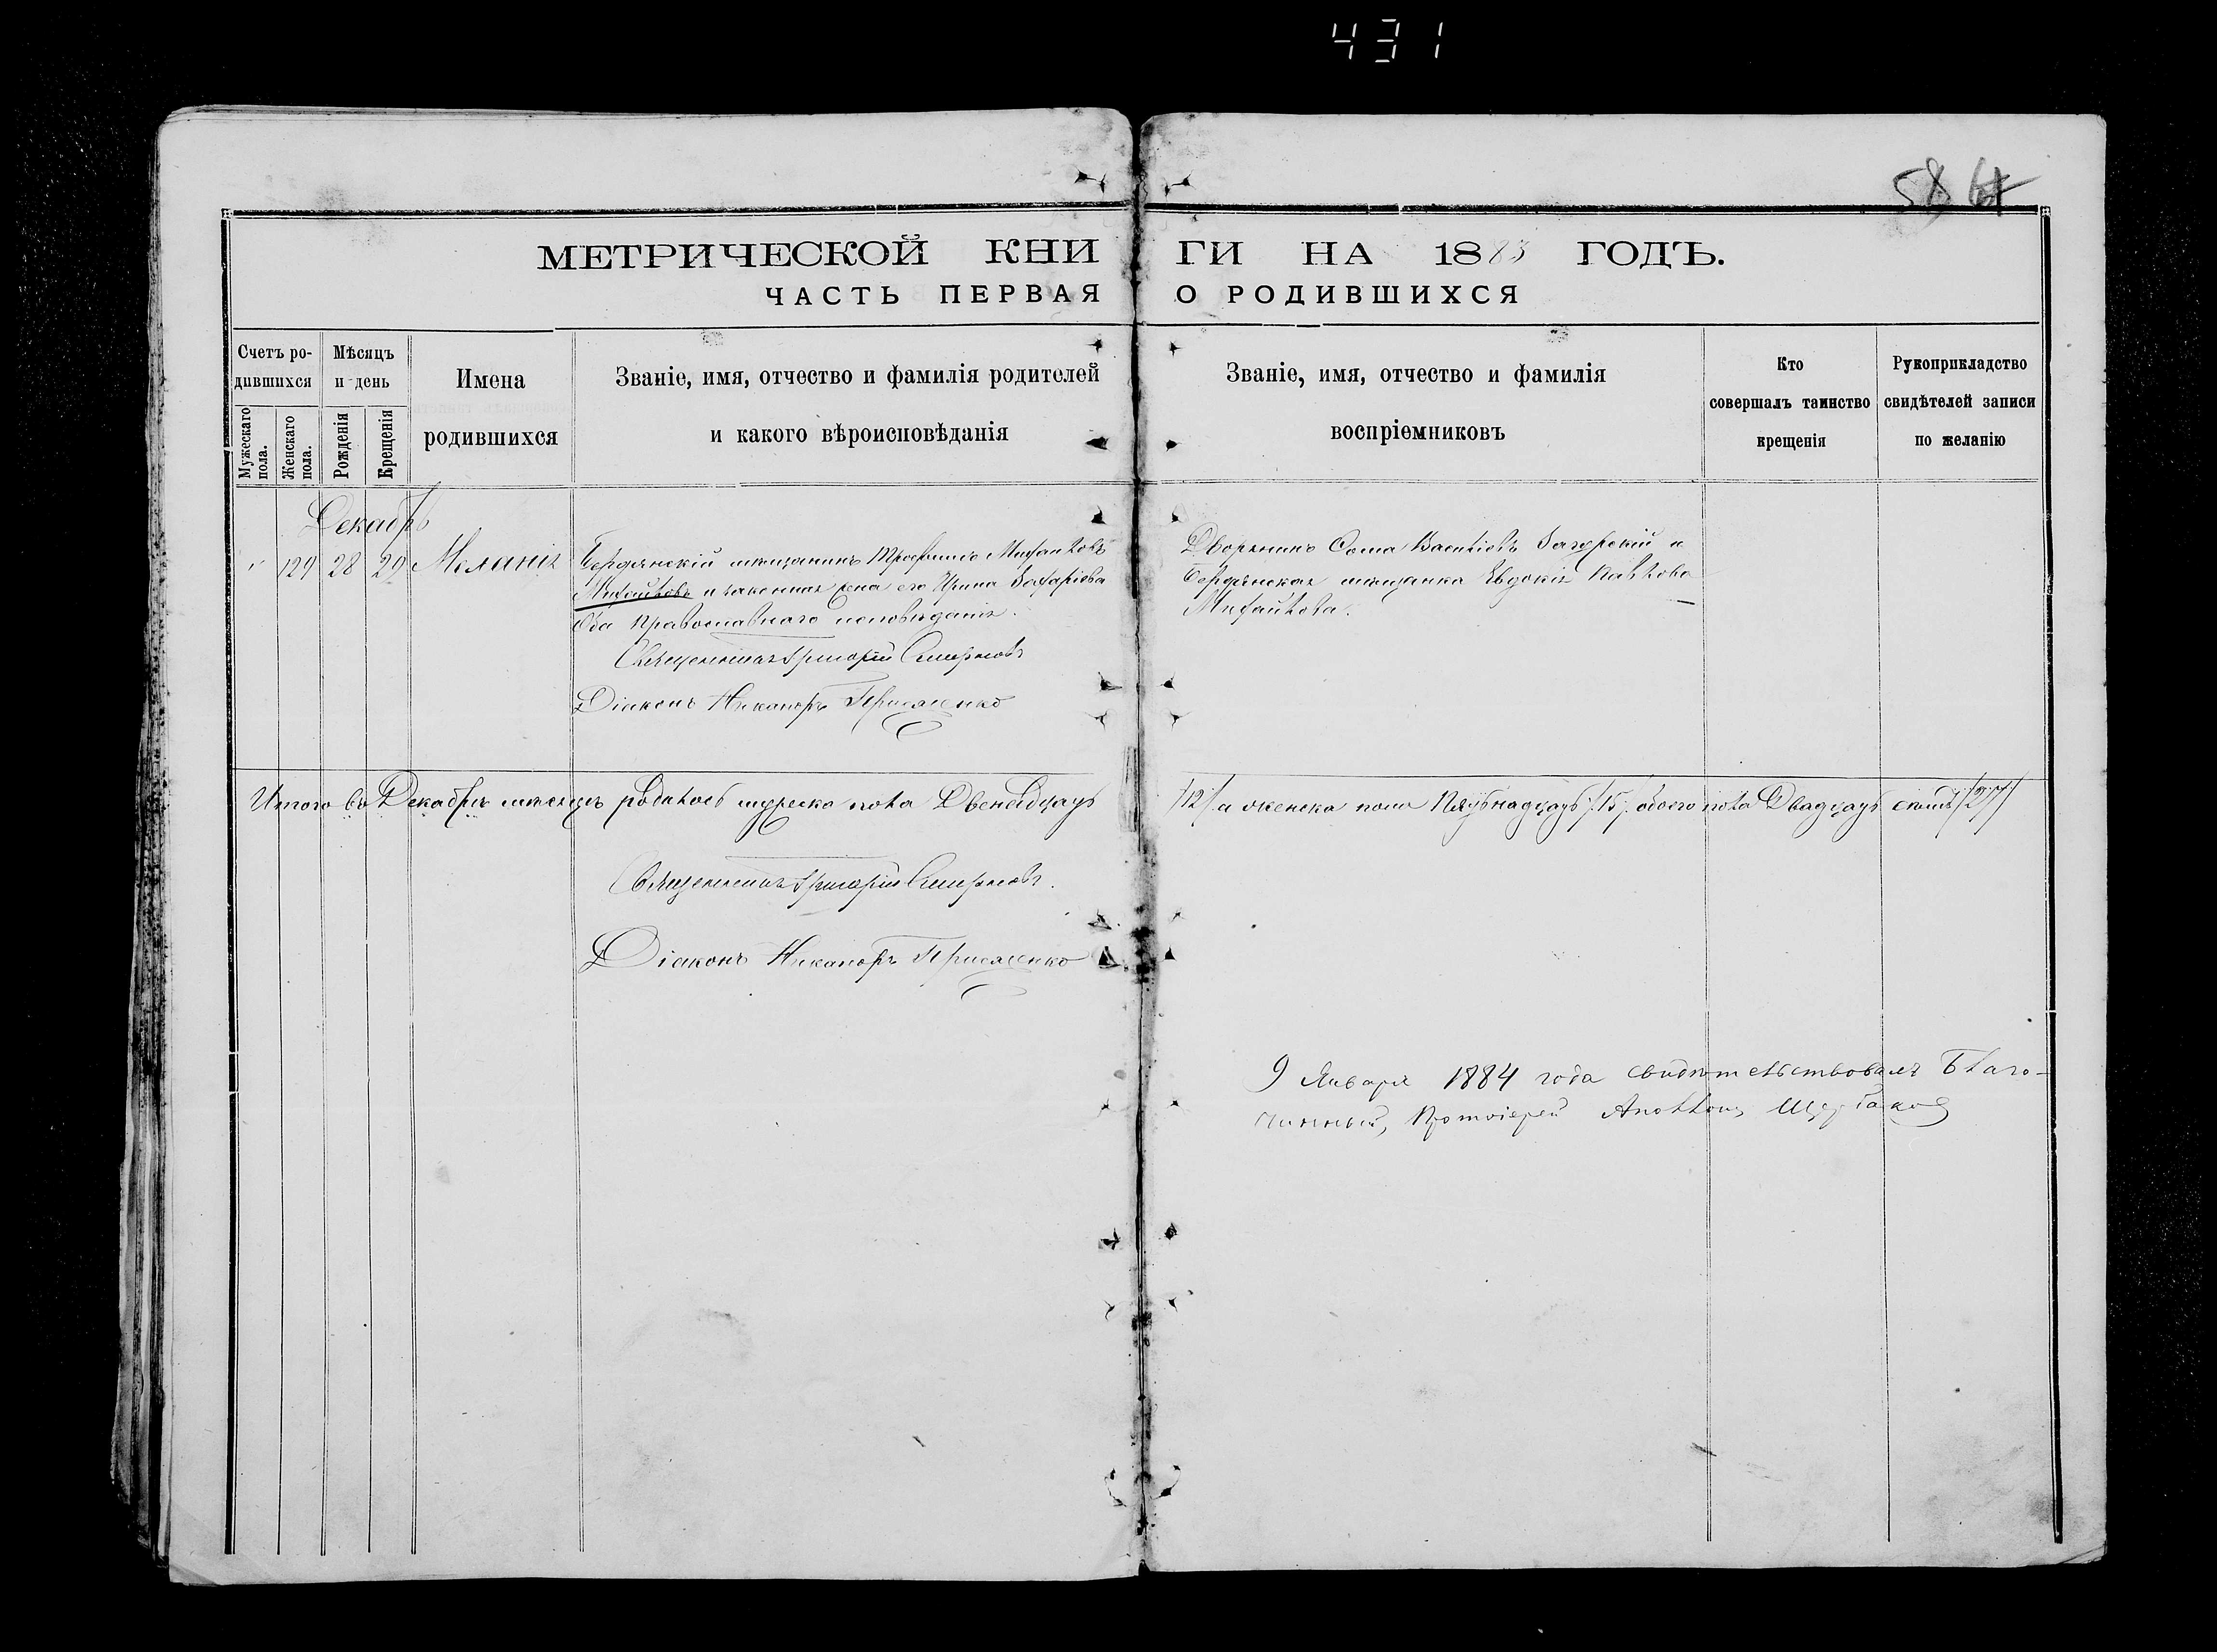 431
58
МЕТРИЧЕСКОЙ КНИГИ НА 1883 ГОДЪ.
ЧАСТЬ ПЕРВАЯ О РОДИВШИХСЯ
Счетъ ро-
дившихся
Мужескаго пола.
Женскаго пола.
Мѣсяцъ
и день
Рожденія
Крещенія
Имена
родившихся
Званіе, имя, отчество и фамилія родителей
и какого вѣроисповѣданія
Званіе, имя, отчество и фамилія
воспріемниковъ
Кто
совершалъ таинство
крещенія
Рукоприкладство
свидѣтелей записи
по желанію
Декабрь
129 28 29 Меланія
Бердянскій мѣщанинъ Трофимъ Михайловъ
Михайловъ и законная жена его Ирина Захаріева
Оба Православнаго исповѣданія.
Священникъ Григорій Смирновъ
Діаконъ Никаноръ
Дворянинъ Ѳома Васильевъ Загорскій и
Бердянская мѣщанка Евдокія Павлова
Михайлова.
Итого въ Декабрѣ мѣсяцѣ родилось мужеска пола Двенадцать /12/ а женска пола Пятьнадцать /15/ обоего пола Двадцать семь /27/
Священникъ Григорій Смирновъ.
Діаконъ Никаноръ
9 Января 1884 года свидѣтельствовалъ Благо-
чинный, Протоіерей Аполлонъ Щербаковъ